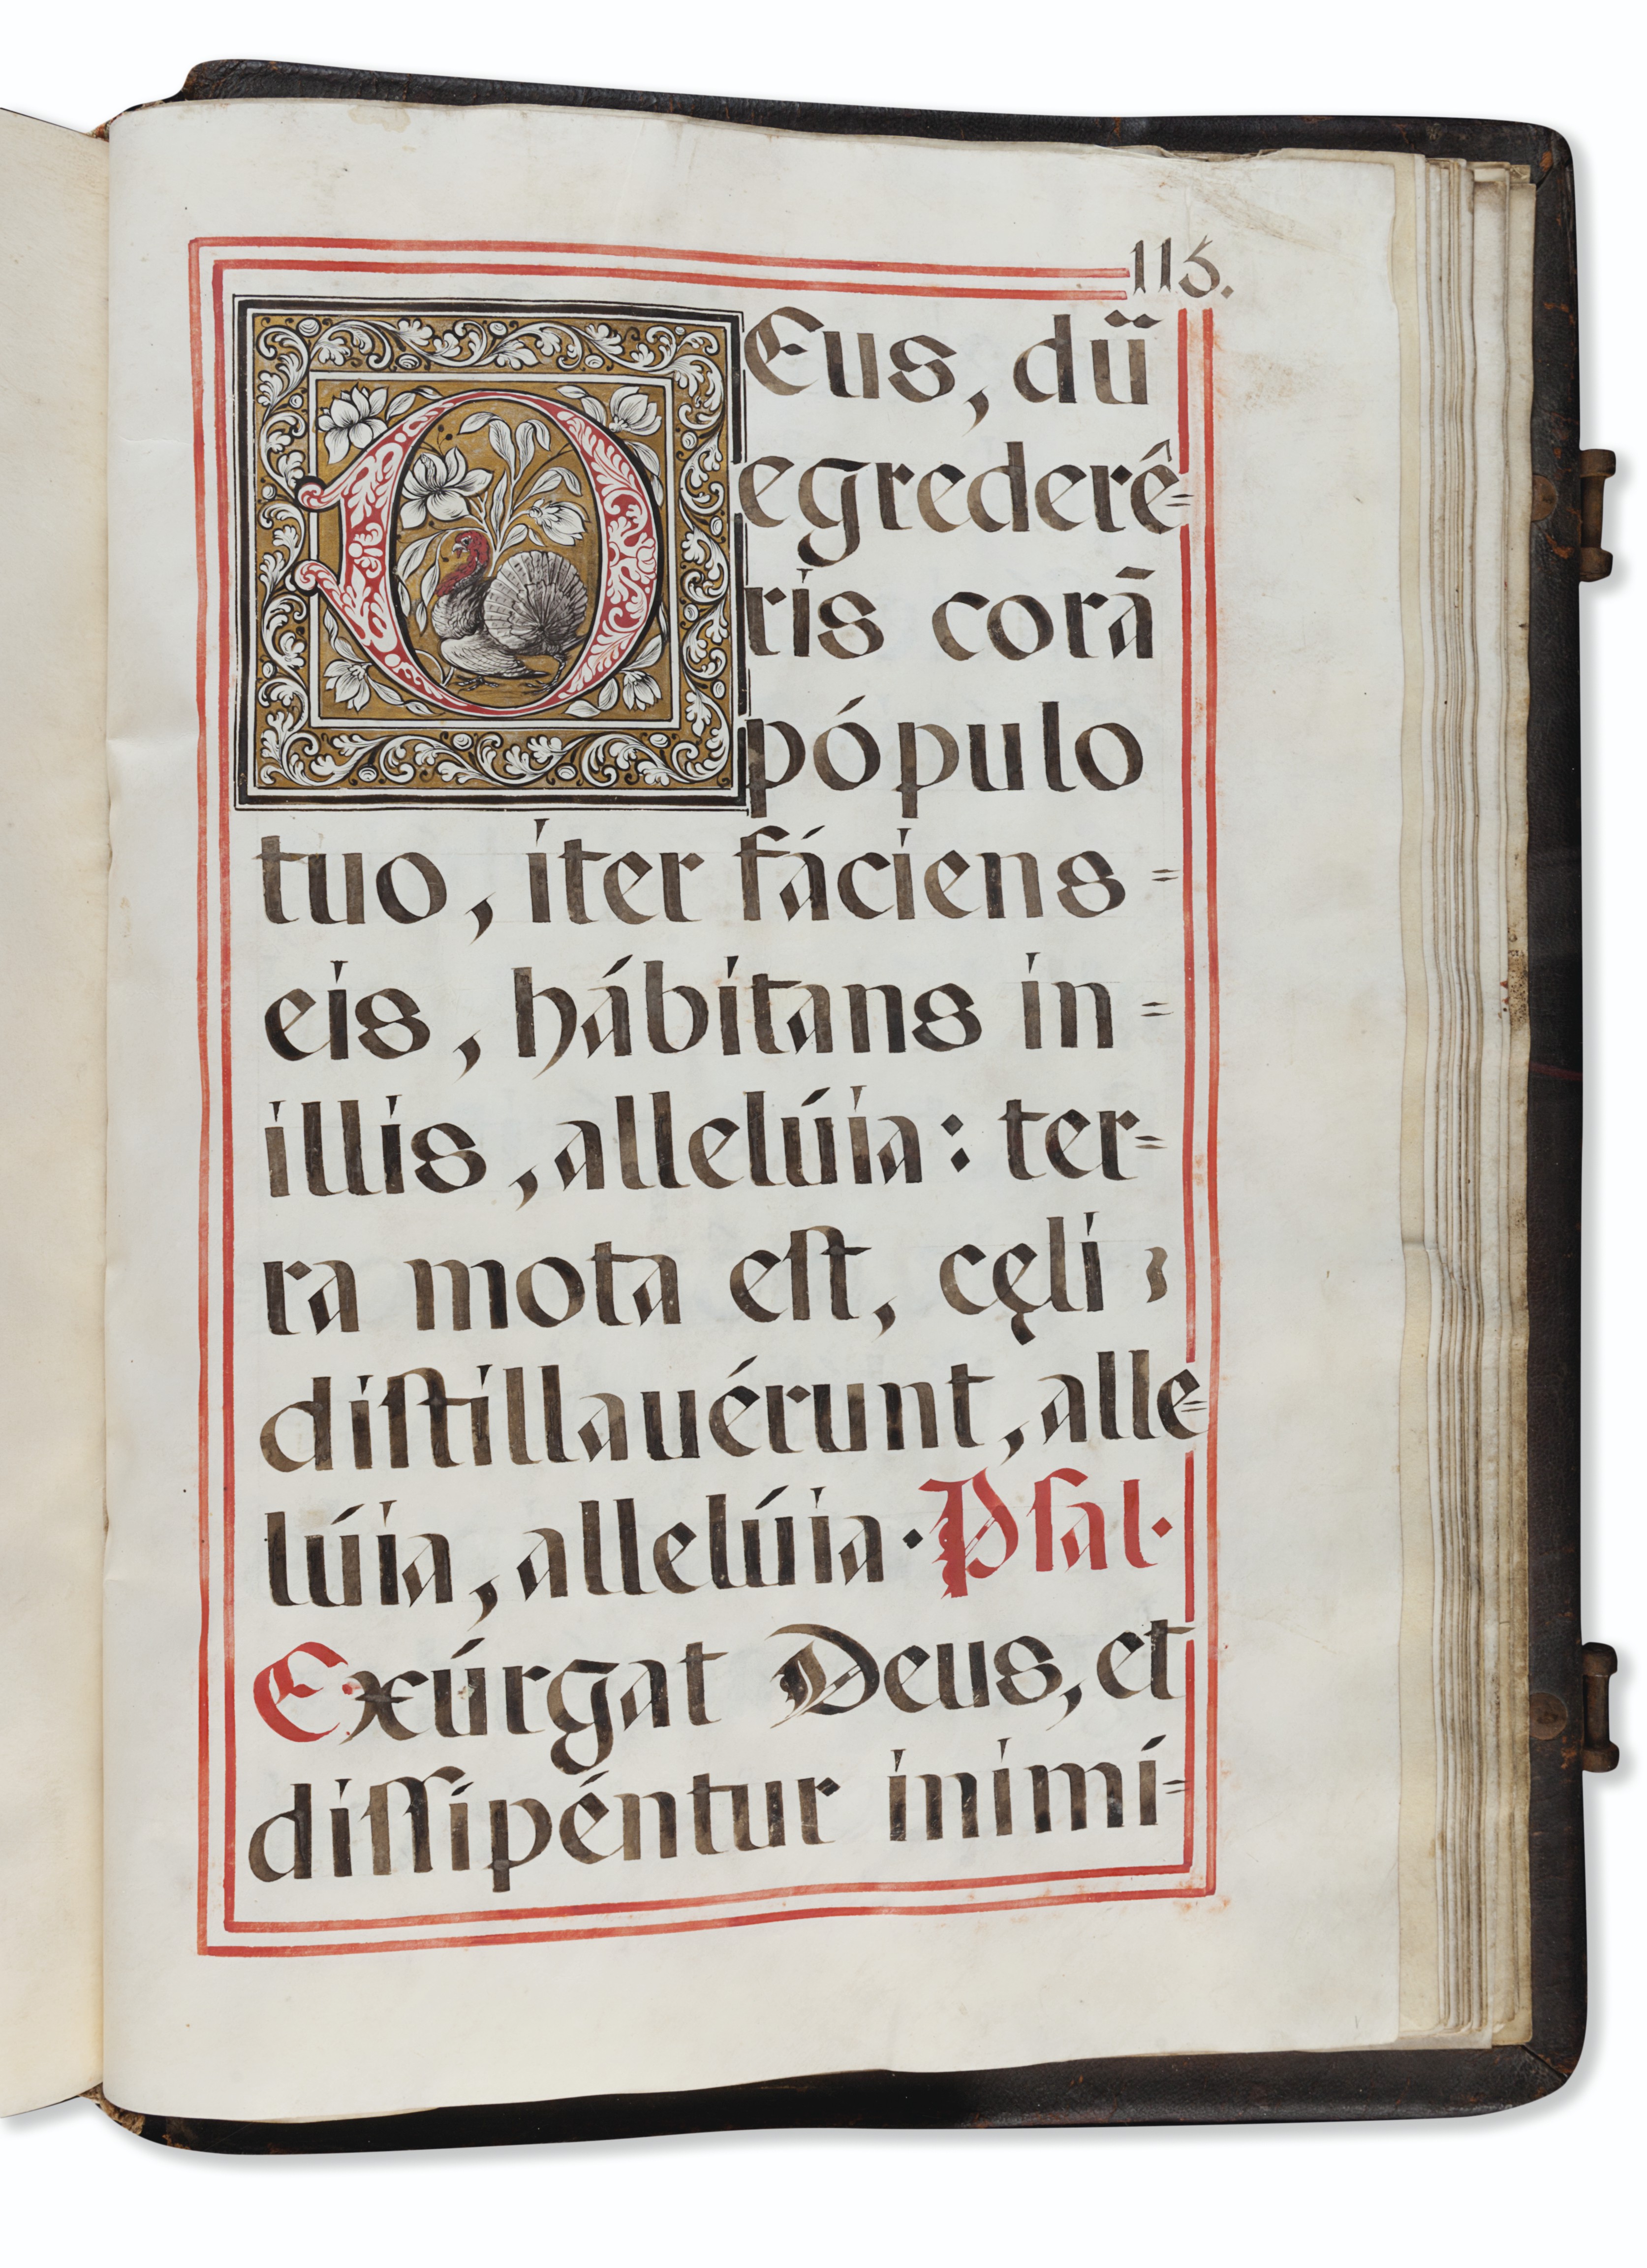 115.
DEus, dū
egrederê=
ris corã
pópulo
tuo, iter fáciens =
eis, hábitans in =
illis, allelúia: ter=
ra mota eſt, cęli
diſtillauérunt, alle=
lúia, allelúia. Pſal.
Exúrgat Deus, et
diſſipéntur inimí=